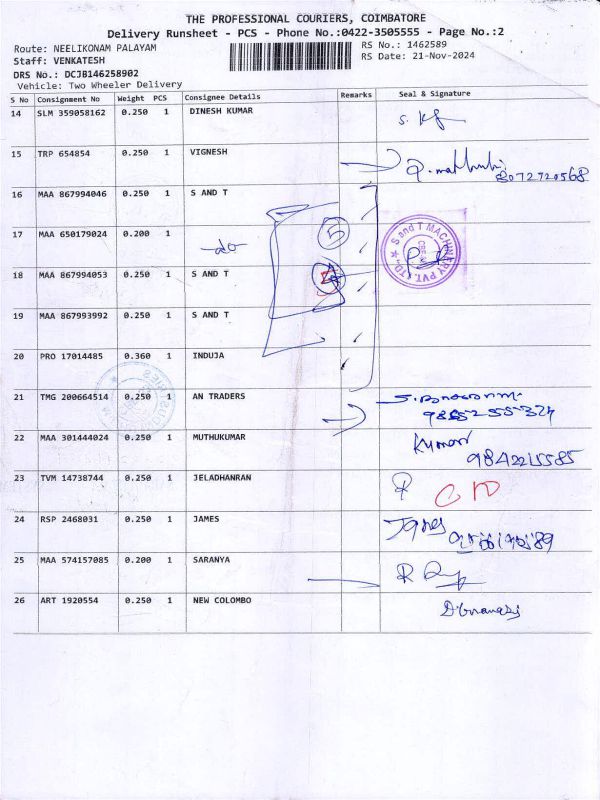 THE PROFESSIONAL COURIERS, COIMBATORE
Delivery Runsheet - PCS - Phone No.:0422-3505555 - Page No.:2
Route: NEELIKONAM PALAYAM
RS No.: 1462589
Staff: VENKATESH
RS Date: 21-Nov-2024
DRS No.: DCJB146258902
Vehicle: Two Wheeler Delivery
S No Consignment No Weight PCS Consignee Details Remarks Seal & Signature
14 SLM 359058162 0.250 1 DINESH KUMAR
15 TRP 654854 0.250 1 VIGNESH
8072720568
16 MAA 867994046 0.250 1 S AND T
17 MAA 650179024 0.200 1 -do- 5
S and T MACHINERY PVT. LTD.,
18 MAA 867994053 0.250 1 S AND T
19 MAA 867993992 0.250 1 S AND T
20 PRO 17014485 0.360 1 INDUJA
21 TMG 200664514 0.250 1 AN TRADERS
22 MAA 301444024 0.250 1 MUTHUKUMAR Kumar
23 TVM 14738744 0.250 1 JELADHANRAN
24 RSP 2468031 0.250 1 JAMES James
25 MAA 574157085 0.200 1 SARANYA
26 ART 1920554 0.250 1 NEW COLOMBO